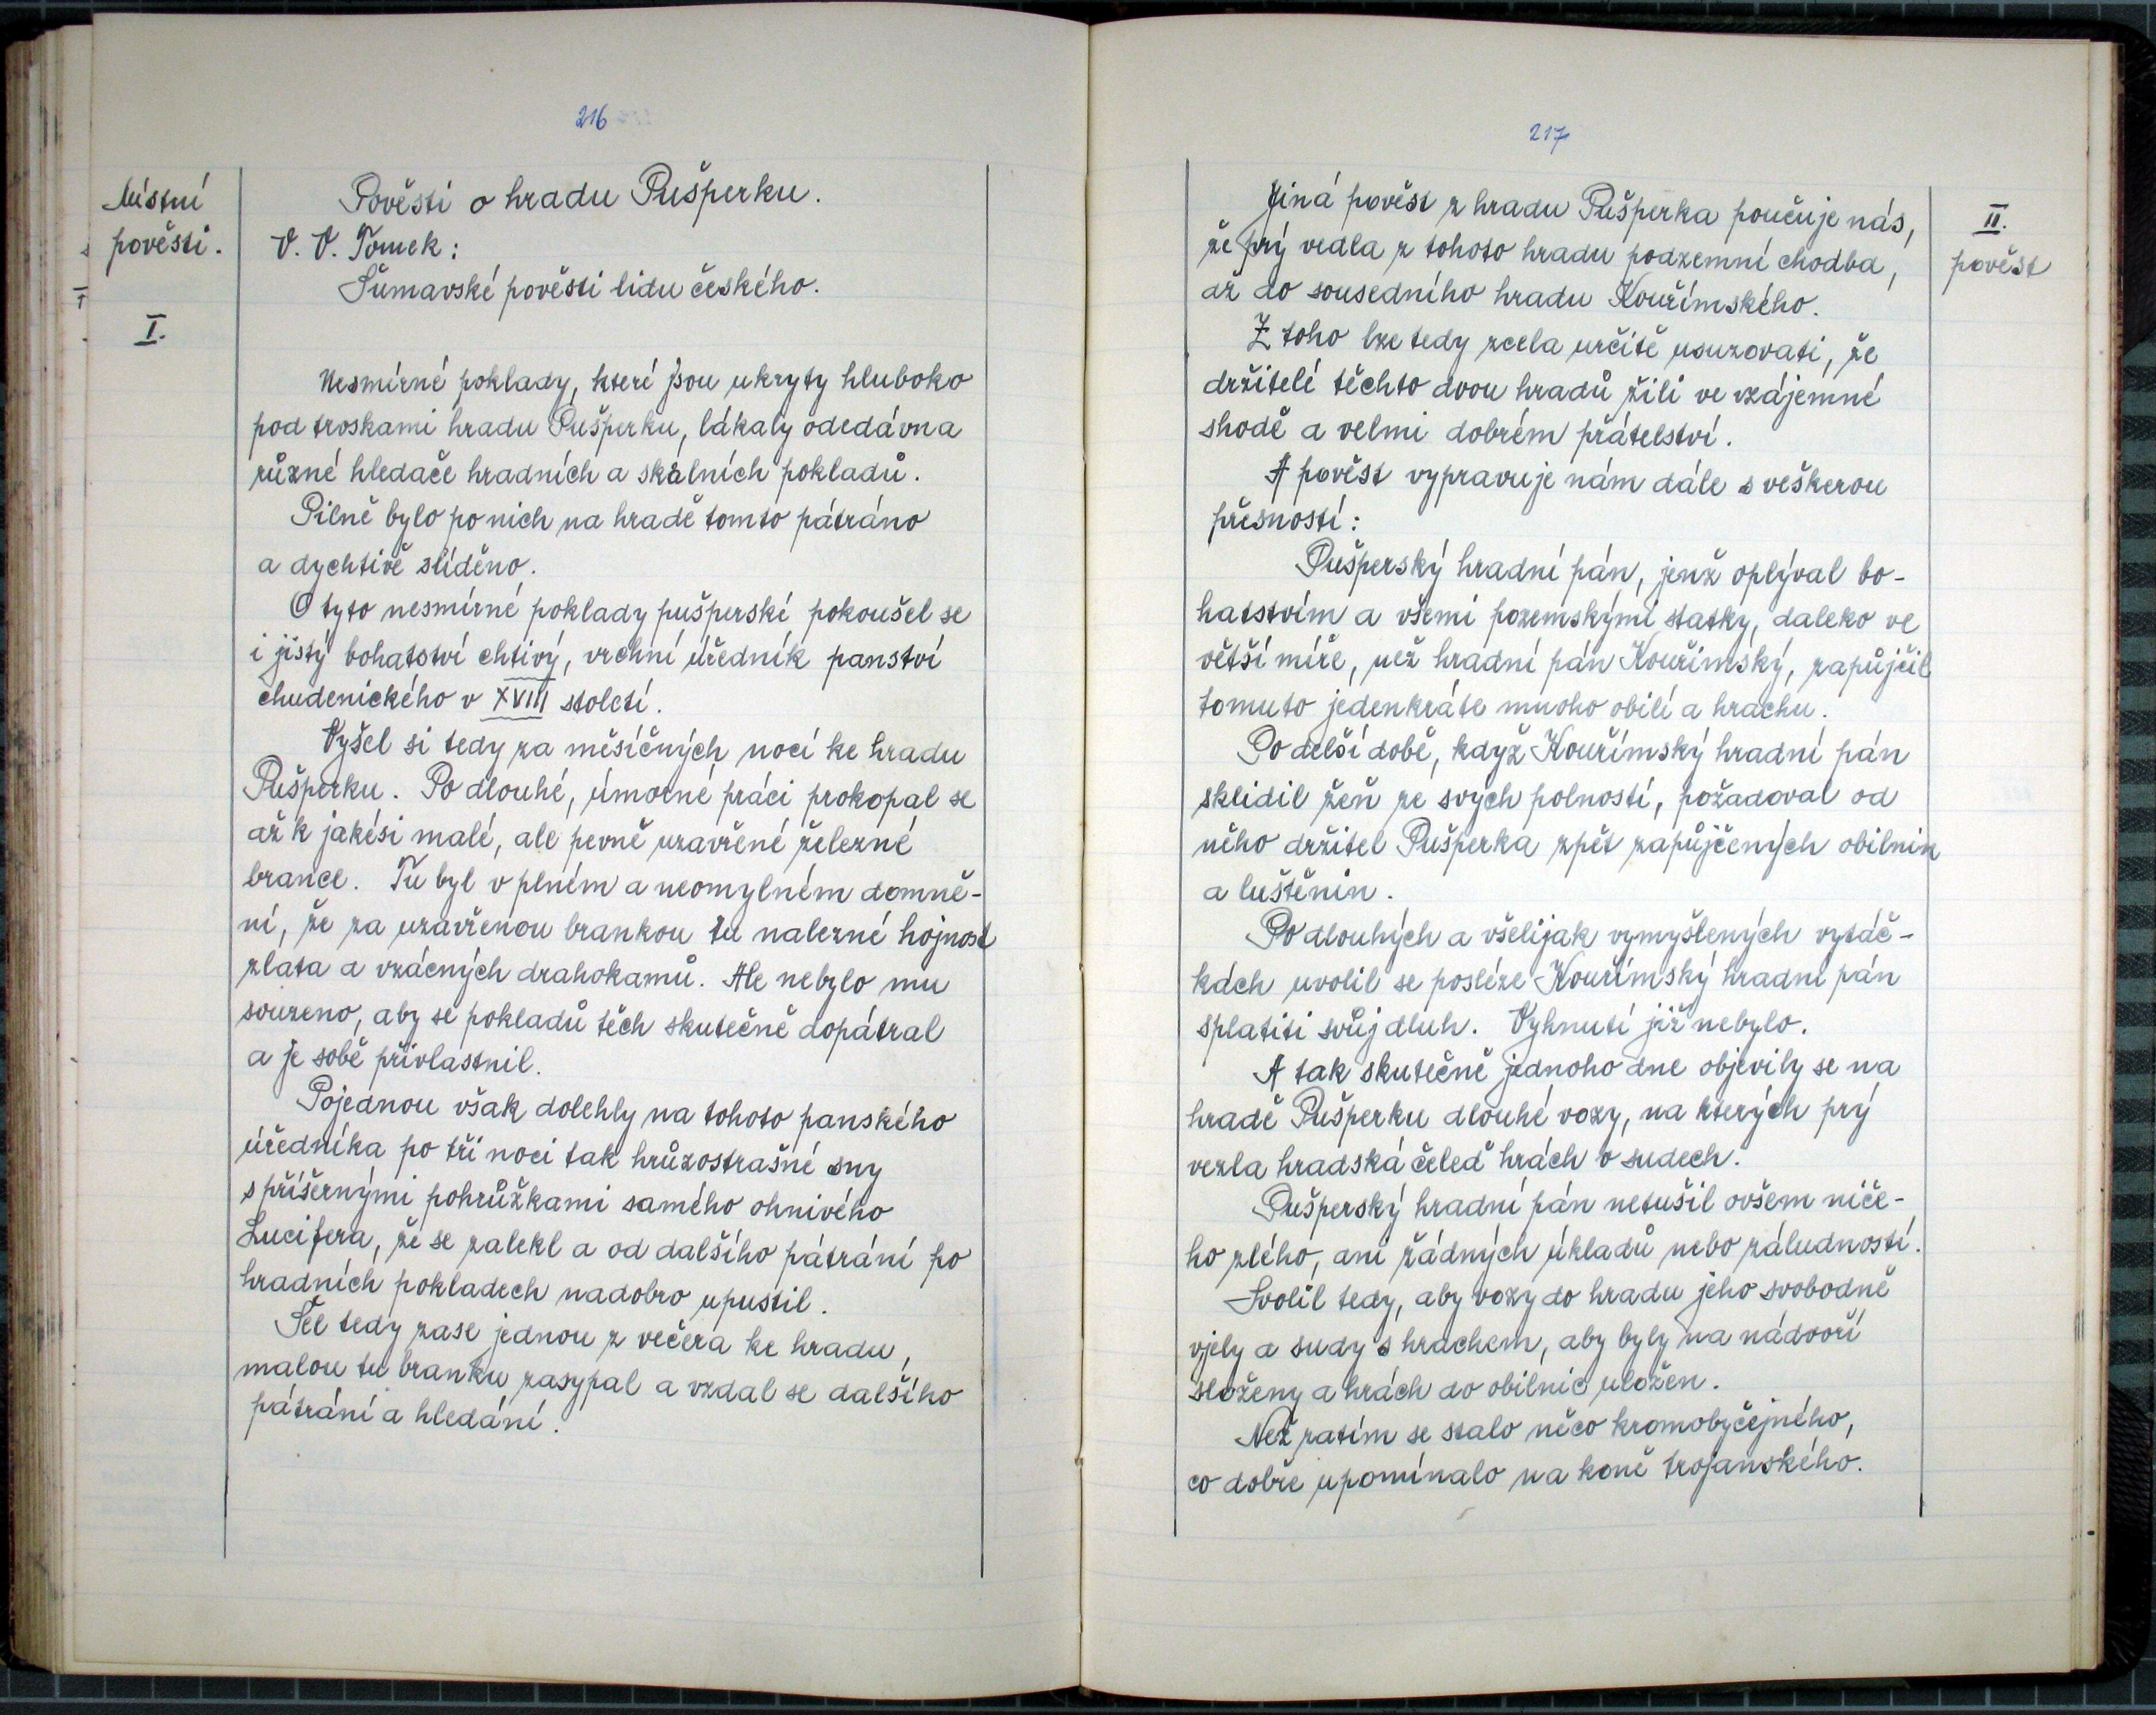 216
Místní
pověsti.
I.
Pověsti o hradu Pušperku.
V. V. Tomek:
Šumavské pověsti lidu českého.
Nesmírné poklady, které jsou ukryty hluboko
pod troskami hradu Pušperku, lákaly odedávna
různé hledače hradních a skalních pokladů.
Pilně bylo po nich na hradě tomto pátráno
a dychtivě slíděno.
O tyto nesmírné poklady pušperské pokoušel se
i jistý bohatství chtivý, vrchní úředník panství
chudenického v XVIII století.
Vyšel si tedy za měsíčných nocí ke hradu
Pušperku. Po dlouhé, úmorné práci prokopal se
až k jakési malé, ale pevně uzavřené železné
brance. Tu byl v plném a neomylném domně-
ní, že za uzavřenou brankou tu nalezne hojnost
zlata a vzácných drahokamů. Ale nebylo mu
souzeno, aby se pokladů těch skutečně dopátral
a je sobě přivlastnil.
Pojednou však dolehly na tohoto panského
úředníka po tři noci tak hrůzostrašné sny
s příšernými pohrůžkami samého ohnivého
Lucifera, že se zalekl a od dalšího pátrání po
hradních pokladech nadobro upustil.
Šel tedy zase jednou z večera ke hradu,
malou tu branku zasypal a vzdal se dalšího
pátrání a hledání.
217
II.
pověst
Jiná pověst z hradu Pušperka poučuje nás,
že prý vedla z tohoto hradu podzemní chodba,
až do sousedního hradu Kouřímského.
Z toho lze tedy zcela určitě usuzovati, že
držitelé těchto dvou hradů žili ve vzájemné
shodě a velmi dobrém přátelství.
A pověst vypravuje nám dále s veškerou
přesností:
Pušperský hradní pán, jenž oplýval bo-
hatstvím a všemi pozemskými statky, daleko ve
větší míře, než hradní pán Kouřimský, zapůjčil
tomuto jedenkráte mnoho obilí a hrachu.
Po delší době, když Kouřímský hradní pán
sklidil žeň ze svých polností, požadoval od
něho držitel Pušperka zpět zapůjčených obilnin
a luštěnin.
Po dlouhých a všelijak vymyšlených vytáč-
kách uvolil se posléze Kouřímský hradní pán
splatiti svůj dluh. Vyhnutí již nebylo.
A tak skutečně jednoho dne objevily se na
hradě Pušperku dlouhé vozy, na kterých prý
vezla hradská čeleď hrách v sudech.
Pušperský hradní pán netušil ovšem niče-
ho zlého, ani žádných úkladů nebo záludností.
Svolil tedy, aby vozy do hradu jeho svobodně
vjely a sudy s hrachem, aby byly na nádvoří
složeny a hrách do obilnic uložen.
Než zatím se stalo něco kromobyčejného,
co dobře upomínalo na koně trojanského.